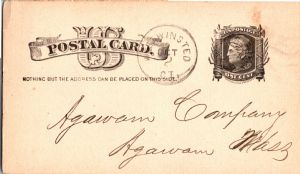 U S
POSTAL CARD.
WINSTED
CT.
U.S. POSTAGE
ONE CENT
NOTHING BUT THE ADDRESS CAN BE PLACED ON THIS SIDE.
Agawam Company
Agawam
Mass